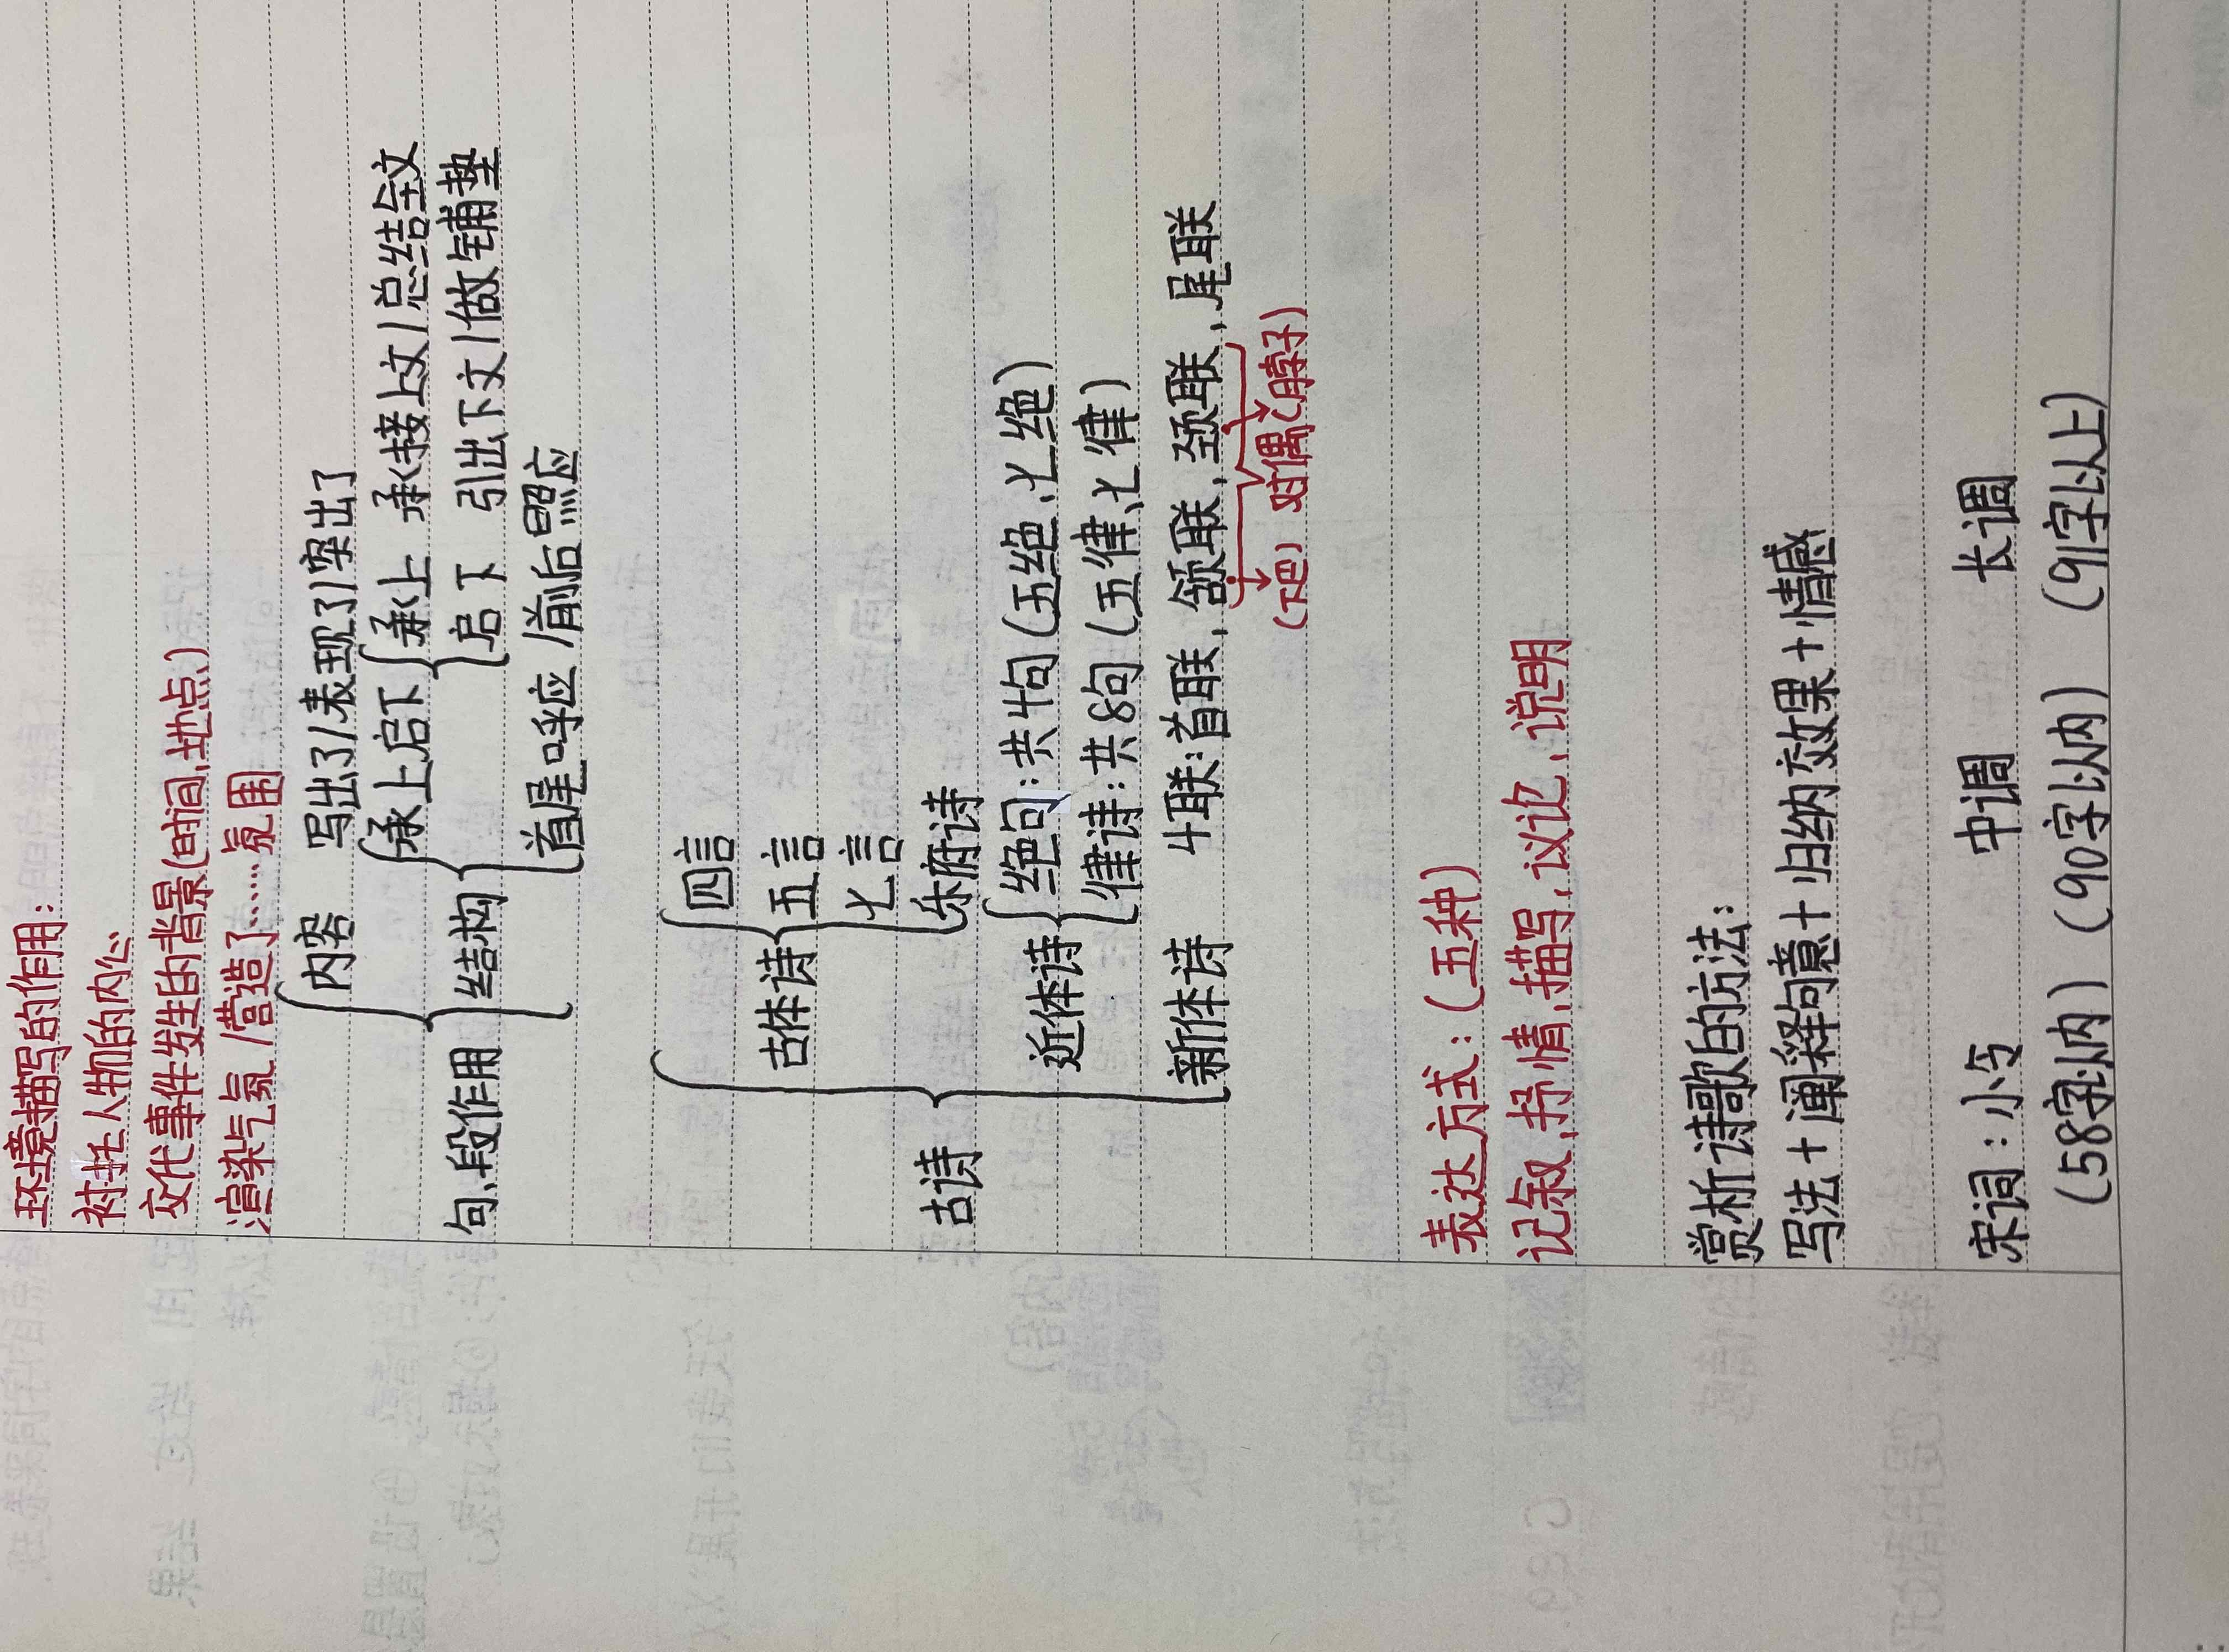 环境描写的作用：
衬托人物的内心
交代事件发生的背景(时间、地点)
渲染气氛/营造了……氛围
内容 写出了/表现了/突出了
承上启下 承上 承接上文/总结全文
句、段作用 结构 启下 引出下文/做铺垫
首尾呼应/前后照应
四言
古体诗 五言
七言
古诗 乐府诗
近体诗 绝句：共4句(五绝、七绝)
律诗：共8句(五律、七律)
新体诗 4联：首联，颔联，颈联，尾联
(下巴) 对偶 (脖子)
表达方式：(五种)
记叙、抒情、描写、议论、说明
赏析诗歌的方法：
写法+阐释句意+归纳效果+情感
宋词：小令 中调 长调
(58字以内) (90字以内) (91字以上)